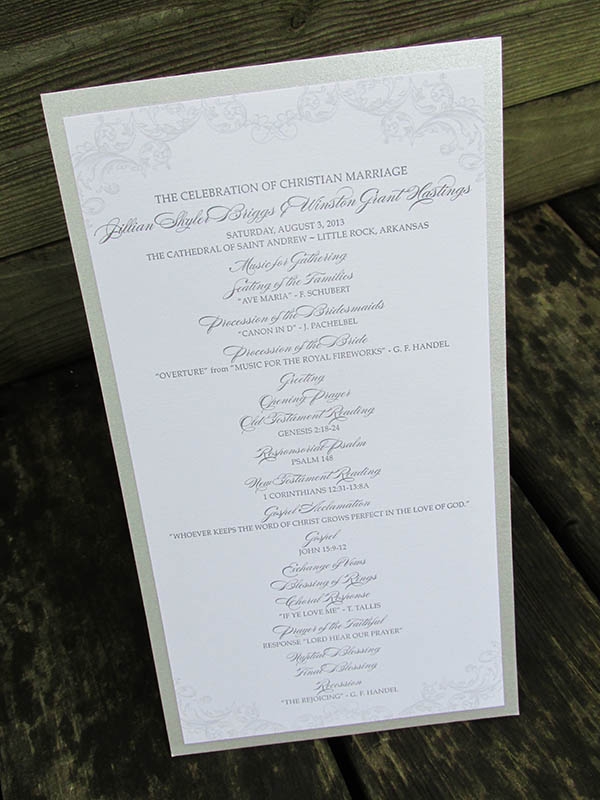 THE CELEBRATION OF CHRISTIAN MARRIAGE
Jillian Skyler Briggs & Winston Grant Hastings
SATURDAY, AUGUST 3, 2013
THE CATHEDRAL OF SAINT ANDREW ~ LITTLE ROCK, ARKANSAS
Music for Gathering
Seating of the Families
"AVE MARIA" - F. SCHUBERT
Procession of the Bridesmaids
"CANON IN D" - J. PACHELBEL
Procession of the Bride
"OVERTURE" from "MUSIC FOR THE ROYAL FIREWORKS" - G. F. HANDEL
Greeting
Opening Prayer
Old Testament Reading
GENESIS 2:18-24
Responsorial Psalm
PSALM 148
New Testament Reading
1 CORINTHIANS 12:31-13:8A
Gospel Acclamation
"WHOEVER KEEPS THE WORD OF CHRIST GROWS PERFECT IN THE LOVE OF GOD."
Gospel
JOHN 15:9-12
Exchange of Vows
Blessing of Rings
Choral Response
"IF YE LOVE ME" - T. TALLIS
Prayer of the Faithful
RESPONSE "LORD HEAR OUR PRAYER"
Nuptial Blessing
Final Blessing
Recession
"THE REJOICING" - G. F. HANDEL